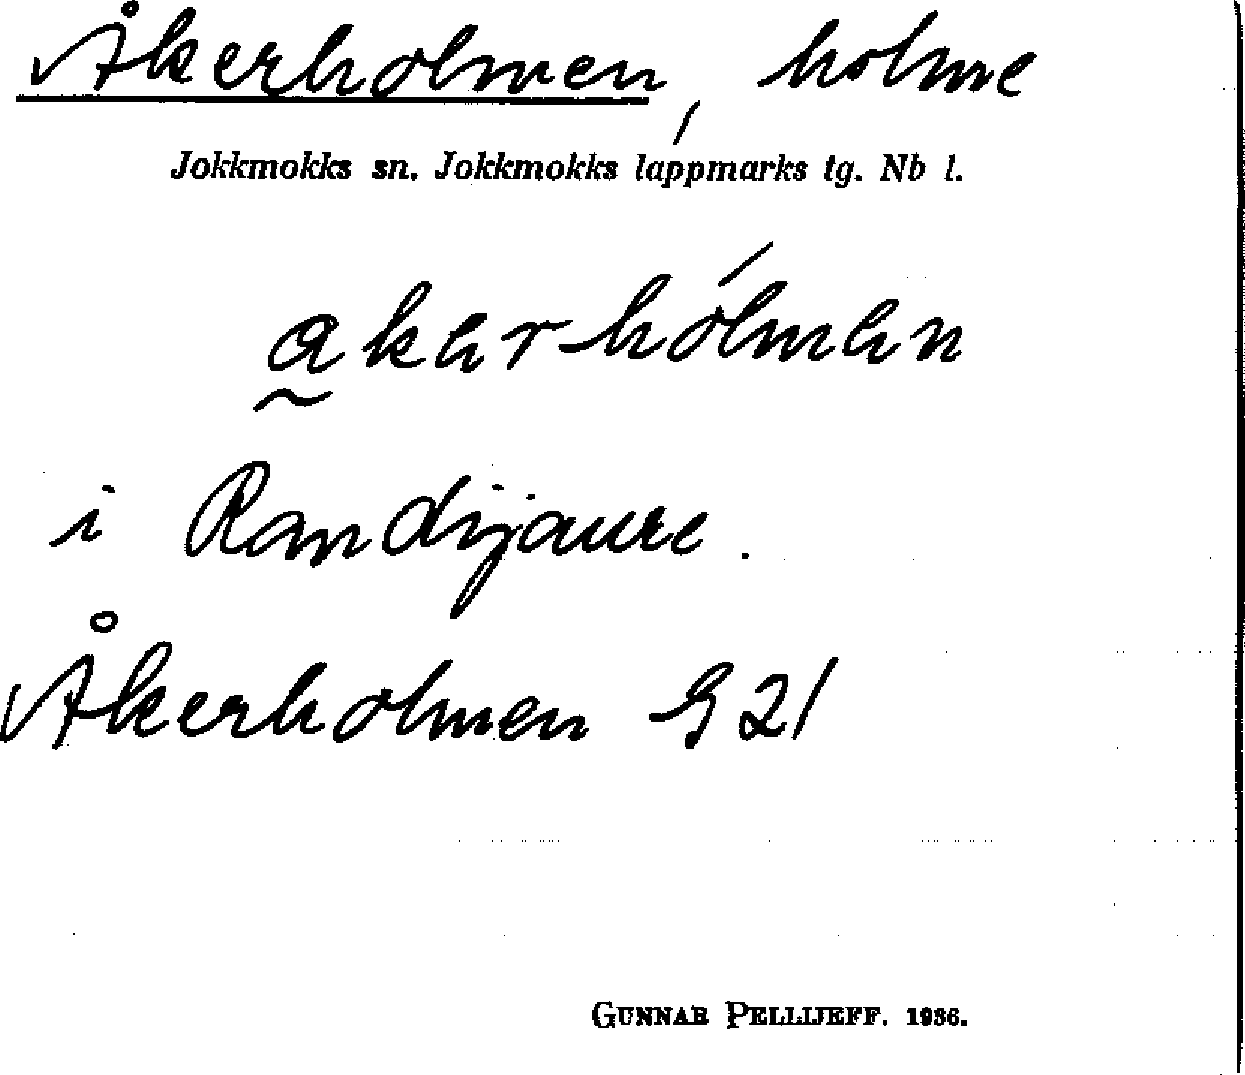 Åkerholmen, holme
Jokkmokks sn. Jokkmokks lappmarks tg. Nb l.
i Randijaure.
Åkerholmen G 21
GUNNAR PELLIJEFF. 1936.